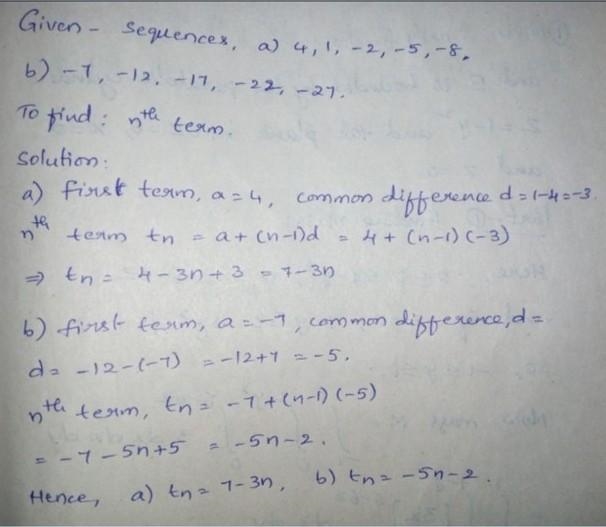 Given - Sequences, a) 4, 1, -2, -5, -8,
b) -7, -12, -17, -22, -27.
To find : nth term.
Solution:
a) first term, a = 4, common difference d = 1-4 = -3.
nth term tn = a + (n-1)d = 4 + (n-1) (-3)
⇒ tn = 4 - 3n + 3 = 7 - 3n
b) first term, a = -7, common difference, d =
d = -12 - (-7) = -12+7 = -5.
nth term, tn = -7 + (n-1) (-5)
= -7 - 5n + 5 = -5n - 2.
Hence, a) tn = 7-3n, b) tn = -5n-2.